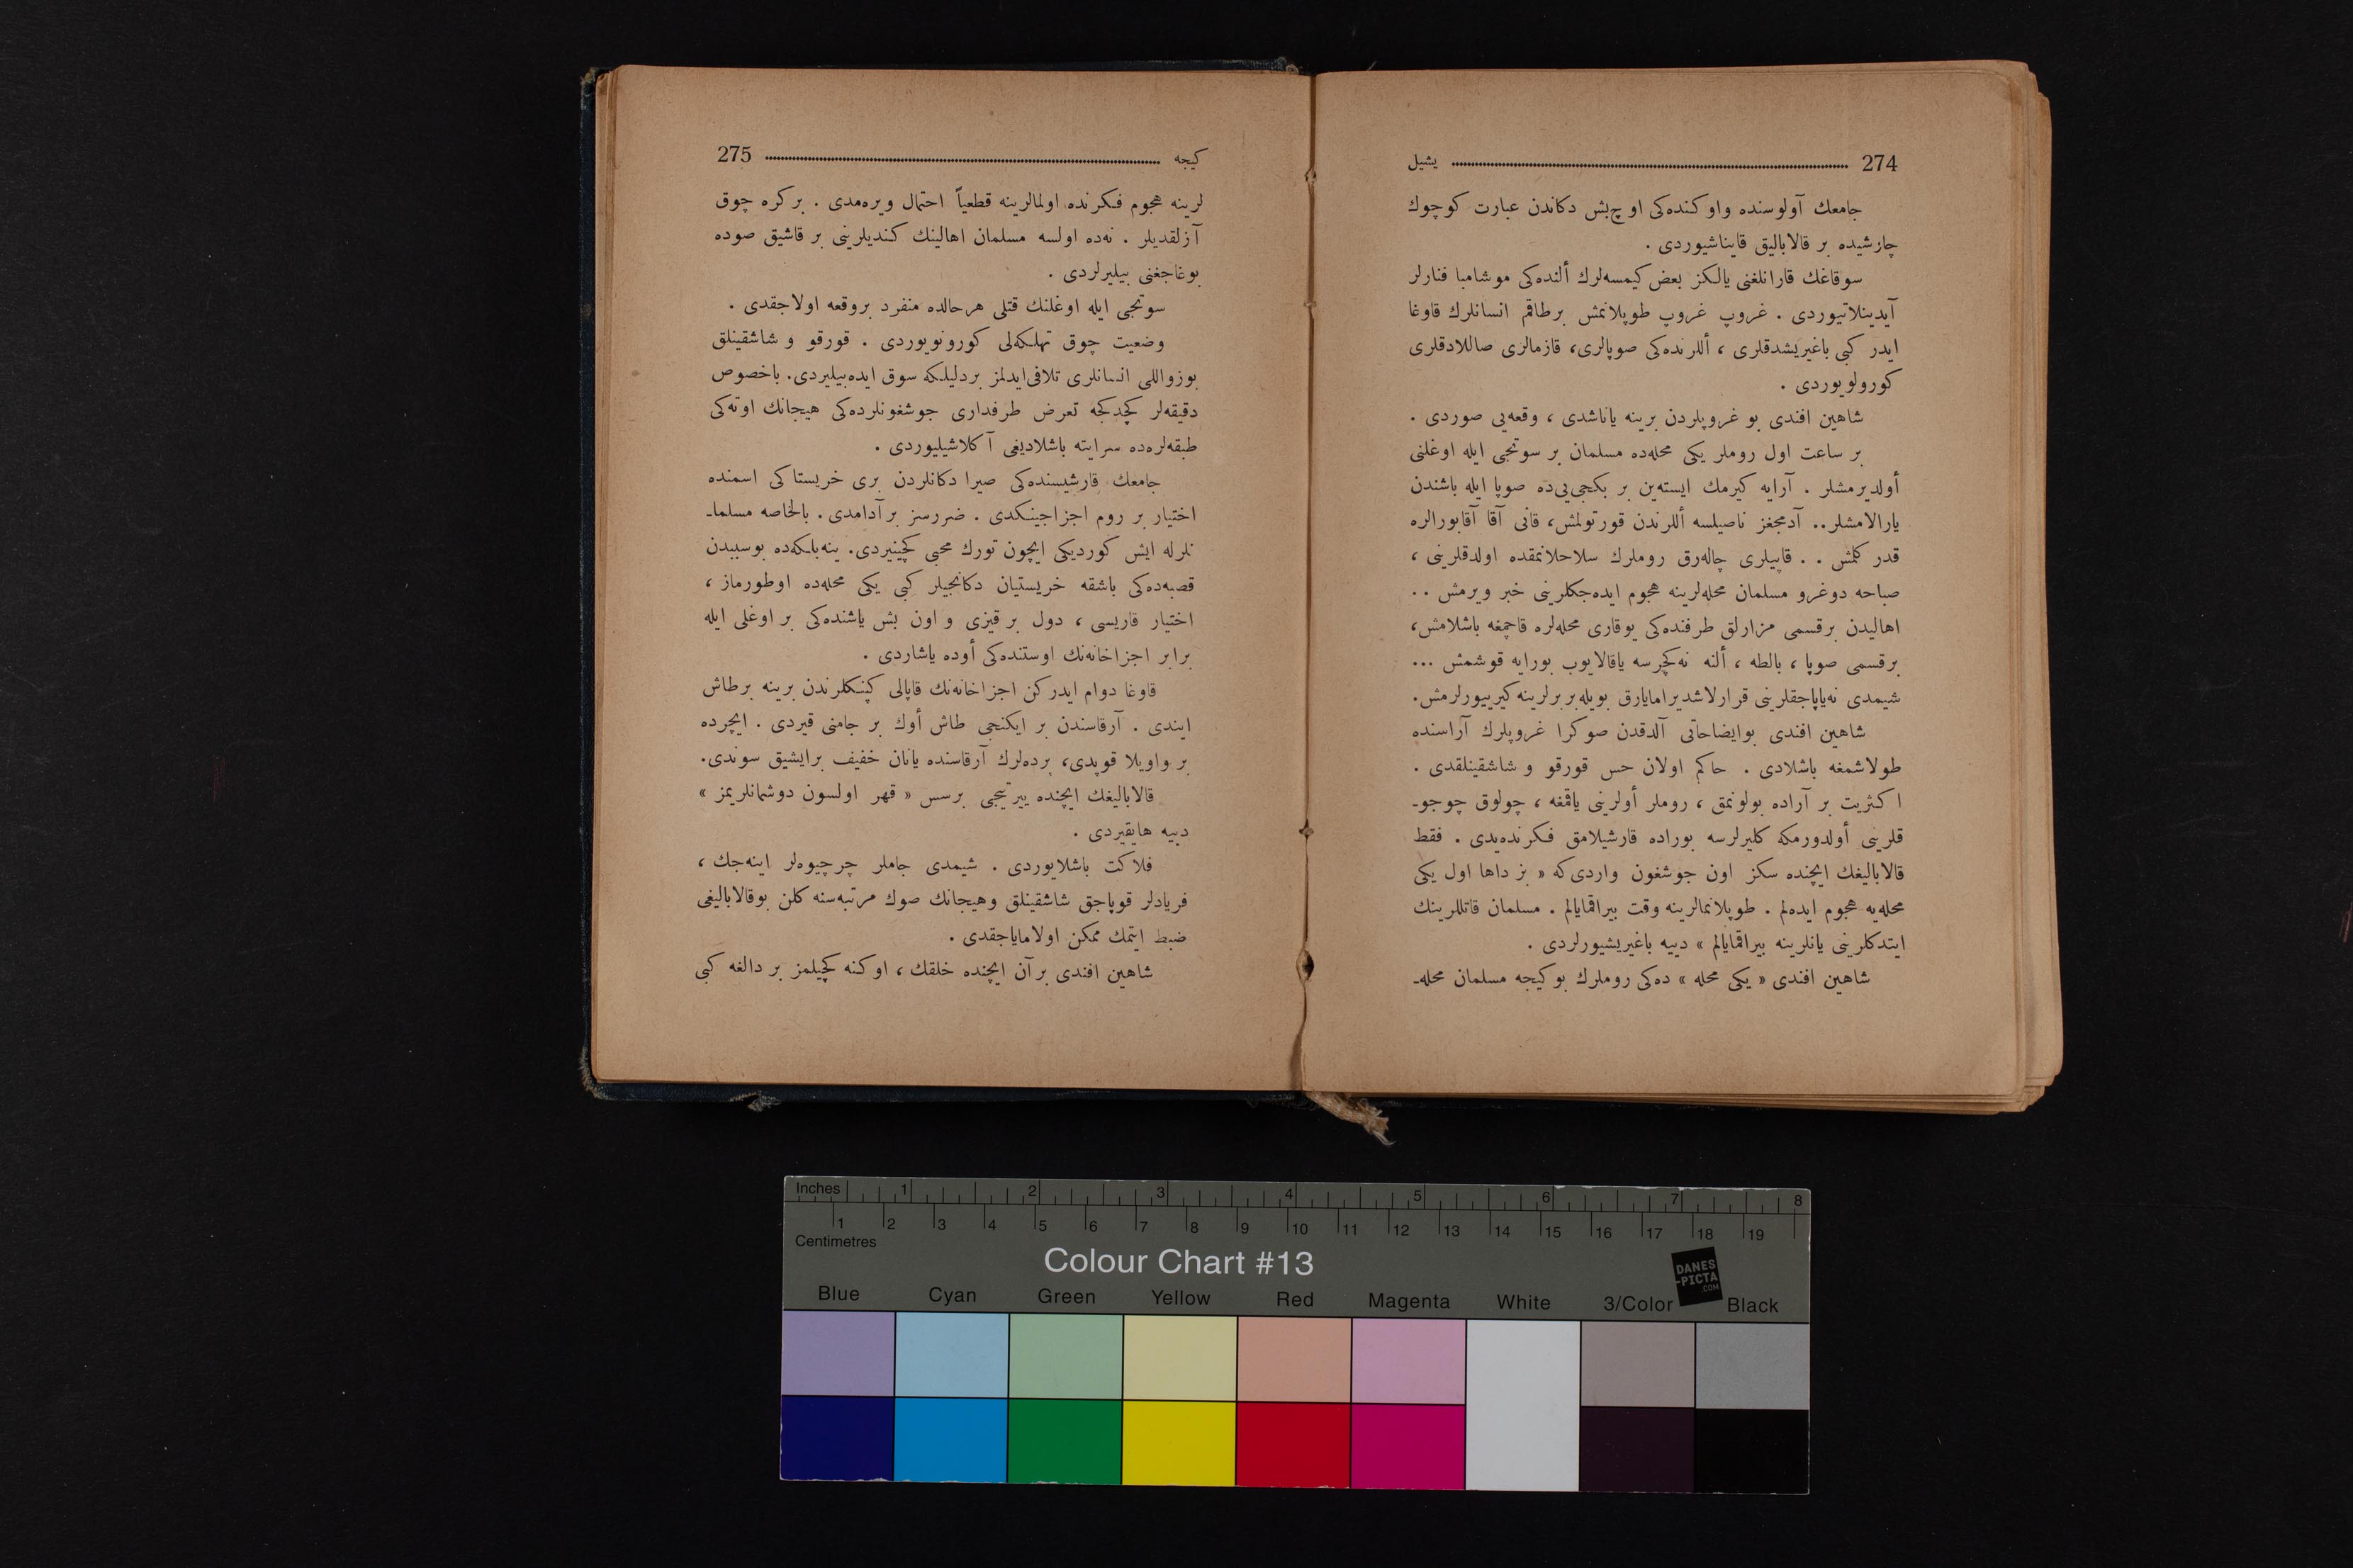 274 يشيل
جامعك آولوسنده واوكنده‌كى اوچ‌بش دكاندن عبارت كوچوك
چارشيده بر قالاباليق قايناشيوردى .
سوقاغك قارانلغنى يالكز بعض كيمسه‌لرك ألنده‌كى موشامبا فنارلر
آيدينلاتيوردى . غروپ غروپ طوپلانمش برطاقم انسانلرك قاوغا
ايدر كبى باغيريشدقلرى ، أللرنده‌كى صوپالرى، قازمالرى صاللادقلرى
كورولويوردى .
شاهين افندى بو غروپلردن برينه ياناشدى ، وقعه‌يى صوردى .
بر ساعت اول روملر يكى محله‌ده مسلمان بر سوتجى ايله اوغلنى
أولديرمشلر . آرايه كيرمك ايسته‌ين بر بكجى‌يى‌ده صوپا ايله باشندن
يارالامشلر.. آدمجغز ناصيلسه أللرندن قورتولمش، قانى آقا آقابورالره
قدر كلمش . . قاپيلرى چاله‌رق روملرك سلاحلانمقده اولدقلرينى ،
صباحه دوغرو مسلمان محله‌لرينه هجوم ايده‌جكلرينى خبر ويرمش . .
اهاليدن برقسمى مزارلق طرفنده‌كى يوقارى محله‌لره قاچمغه باشلامش،
برقسمى صوپا ، بالطه ، ألنه نه‌كچرسه ياقالايوب بورايه قوشمش ...
شيمدى نه‌ياپاجقلرينى قرارلاشديرامايارق بويله‌بربرلرينه كيرييورلرمش.
شاهين افندى بوايضاحاتى آلدقدن صوكرا غروپلرك آراسنده
طولاشمغه باشلادى . حاكم اولان حس قورقو و شاشقينلقدى .
اكثريت بر آراده بولونمق ، روملر أولرينى ياقمغه ، چولوق چوجو-
قلرينى أولدورمكه كليرلرسه بوراده قارشيلامق فكرنده‌يدى . فقط
قالاباليغك ايچنده سكز اون جوشغون واردى‌كه « بز داها اول يكى
محله‌يه هجوم ايده‌لم . طوپلانمالرينه وقت بيراقمايالم . مسلمان قاتللرينك
ايتدكلرينى يانلرينه بيراقمايالم » دييه باغيريشيورلردى .
شاهين افندى « يكى محله » ده‌كى روملرك بو كيجه مسلمان محله-
كيجه 275
لرينه هجوم فكرنده اولمالرينه قطعياً احتمال ويره‌مدى . بركره چوق
آزلقديلر . نه‌ده اولسه مسلمان اهالينك كنديلرينى بر قاشيق صوده
بوغاجغنى بيليرلردى .
سوتجى ايله اوغلنك قتلى هرحالده منفرد بروقعه اولاجقدى .
وضعيت چوق تهلكه‌لى كورونويوردى . قورقو و شاشقينلق
بوزواللى انسانلرى تلافى‌ايدلمز بردليلكه سوق ايده‌بيليردى. باخصوص
دقيقه‌لر كچدكجه تعرض طرفدارى جوشغونلرده‌كى هيجانك اوته‌كى
طبقه‌لره‌ده سرايته باشلاديغى آكلاشيليوردى .
جامعك قارشيسنده‌كى صيرا دكانلردن برى خريستاكى اسمنده
اختيار بر روم اجزاجينكدى . ضررسز برآدامدى. بالخاصه مسلما-
نلرله ايش كورديكى ايچون تورك محبى كچينيردى. ينه‌بلكه‌ده بوسببدن
قصبه‌ده‌كى باشقه خريستيان دكانجيلر كبى يكى محله‌ده اوطورماز ،
اختيار قاريسى ، دول بر قيزى و اون بش ياشنده‌كى بر اوغلى ايله
برابر اجزاخانه‌نك اوستنده‌كى أوده ياشاردى .
قاوغا دوام ايدركن اجزاخانه‌نك قاپالى كپنكلرندن برينه برطاش
ايندى . آرقاسندن بر ايكنجى طاش أوك بر جامنى قيردى . ايچرده
بر واويلا قوپدى، پرده‌لرك آرقاسنده يانان خفيف برايشيق سوندى.
قالاباليغك ايچنده ييرتيجى برسس « قهر اولسون دوشمانلريمز »
دييه هايقيردى .
فلاكت باشلايوردى . شيمدى جاملر چرچيوه‌لر اينه‌جك ،
فريادلر قوپاجق شاشقينلق وهيجانك صوك مرتبه‌سنه كلن بوقالاباليغى
ضبط ايتمك ممكن اولاماياجقدى .
شاهين افندى برآن ايچنده خلقك ، اوكنه كچيلمز بر دالغه كبى
Inches 1 2 3 4 5 6 7 8
1 2 3 4 5 6 7 8 9 10 11 12 13 14 15 16 17 18 19
Centimetres
Colour Chart #13
DANES
-PICTA
.COM
Blue Cyan Green Yellow Red Magenta White 3/Color Black